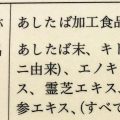 あしたば加工食品
あしたば末、キト
ニ由来)、エノキ
ス、霊芝エキス
参エキス、(すべて